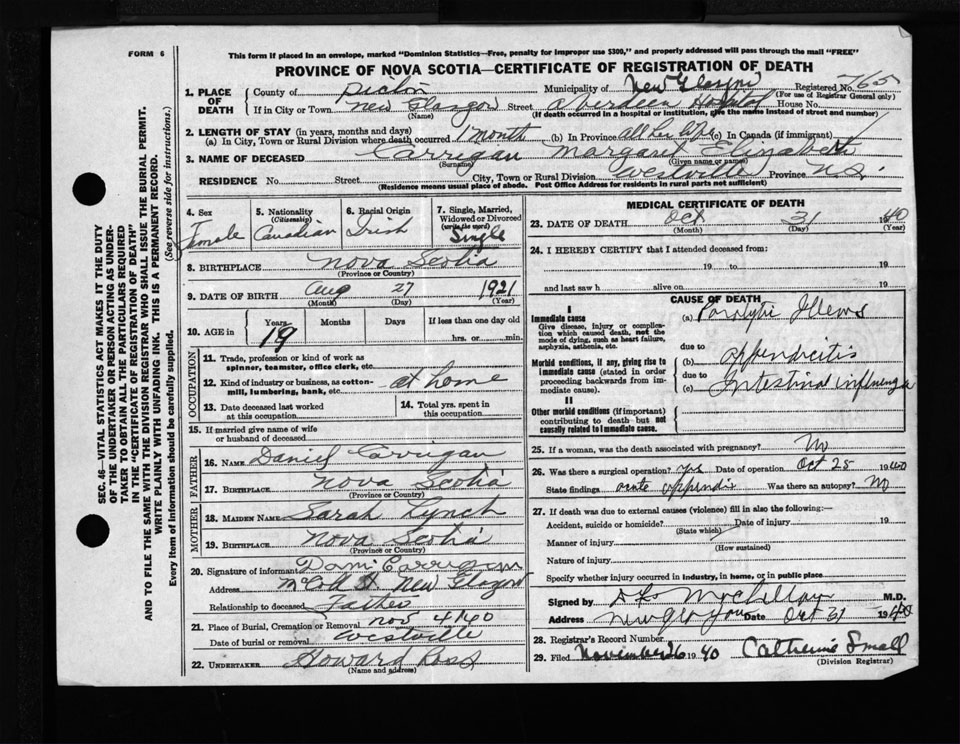 FORM 6
This form if placed in an envelope, marked "Dominion Statistics—Free, penalty for improper use $300," and properly addressed will pass through the mail "FREE"
PROVINCE OF NOVA SCOTIA—CERTIFICATE OF REGISTRATION OF DEATH
SEC. 46—VITAL STATISTICS ACT MAKES IT THE DUTY
OF THE UNDERTAKER OR PERSON ACTING AS UNDER-
TAKER TO OBTAIN ALL THE PARTICULARS REQUIRED
IN THE "CERTIFICATE OF REGISTRATION OF DEATH"
AND TO FILE THE SAME WITH THE DIVISION REGISTRAR WHO SHALL ISSUE THE BURIAL PERMIT.
WRITE PLAINLY WITH UNFADING INK. THIS IS A PERMANENT RECORD.
Every item of information should be carefully supplied.
(See reverse side for instructions.)
1. PLACE OF DEATH
County of Pictou Municipality of New Glasgow Registered No. 765
(For use of Registrar General only)
If in City or Town New Glasgow Street Aberdeen Hospital House No.
(Name) (If death occurred in a hospital or institution, give the name instead of street and number)
2. LENGTH OF STAY (in years, months and days)
(a) In City, Town or Rural Division where death occurred 1 month (b) In Province all her life (c) In Canada (if immigrant)
3. NAME OF DECEASED Carrigan Margaret Elizabeth
(Surname) (Given name or names)
RESIDENCE No. Street City, Town or Rural Division Westville Province N.S.
(Residence means usual place of abode. Post Office Address for residents in rural parts not sufficient)
4. Sex Female
5. Nationality (Citizenship) Canadian
6. Racial Origin Irish
7. Single, Married, Widowed or Divorced (write the word) Single
8. BIRTHPLACE Nova Scotia
(Province or Country)
9. DATE OF BIRTH Aug 27 1921
(Month) (Day) (Year)
10. AGE in Years 19 Months Days If less than one day old
hrs. or min.
OCCUPATION
11. Trade, profession or kind of work as
spinner, teamster, office clerk, etc.
12. Kind of industry or business, as cotton-
mill, lumbering, bank, etc. at home
13. Date deceased last worked
at this occupation
14. Total yrs. spent in
this occupation
15. If married give name of wife
or husband of deceased
FATHER
16. NAME Daniel Carrigan
17. BIRTHPLACE Nova Scotia
(Province or Country)
MOTHER
18. MAIDEN NAME Sarah Lynch
19. BIRTHPLACE Nova Scotia
(Province or Country)
20. Signature of informant Dani Carrigan
Address New Glasgow
Relationship to deceased Father
21. Place of Burial, Cremation or Removal Nov 4/40
Date of burial or removal Westville
22. UNDERTAKER Howard Ross
(Name and address)
MEDICAL CERTIFICATE OF DEATH
23. DATE OF DEATH Oct 31 1940
(Month) (Day) (Year)
24. I HEREBY CERTIFY that I attended deceased from:
19 to 19
and last saw h alive on 19
CAUSE OF DEATH
I
Immediate cause
Give disease, injury or complica-
tion which caused death, not the
mode of dying, such as heart failure,
asphyxia, asthenia, etc.
(a) Paralytic Illeus
due to
Morbid conditions, if any, giving rise to
immediate cause (stated in order
proceeding backwards from im-
mediate cause).
(b) appendicitis
due to
(c) Intestinal influenza
II
Other morbid conditions (if important)
contributing to death but not
causally related to immediate cause.
25. If a woman, was the death associated with pregnancy? No
26. Was there a surgical operation? yes Date of operation Oct 28 1940
State findings acute appendix Was there an autopsy? No
27. If death was due to external causes (violence) fill in also the following:—
Accident, suicide or homicide? Date of injury 19
(State which)
Manner of injury
(How sustained)
Nature of injury
Specify whether injury occurred in industry, in home, or in public place
Signed by M.D.
Address Date Oct 31 1940
28. Registrar's Record Number
29. Filed November 6 1940 Catherine Small
(Division Registrar)